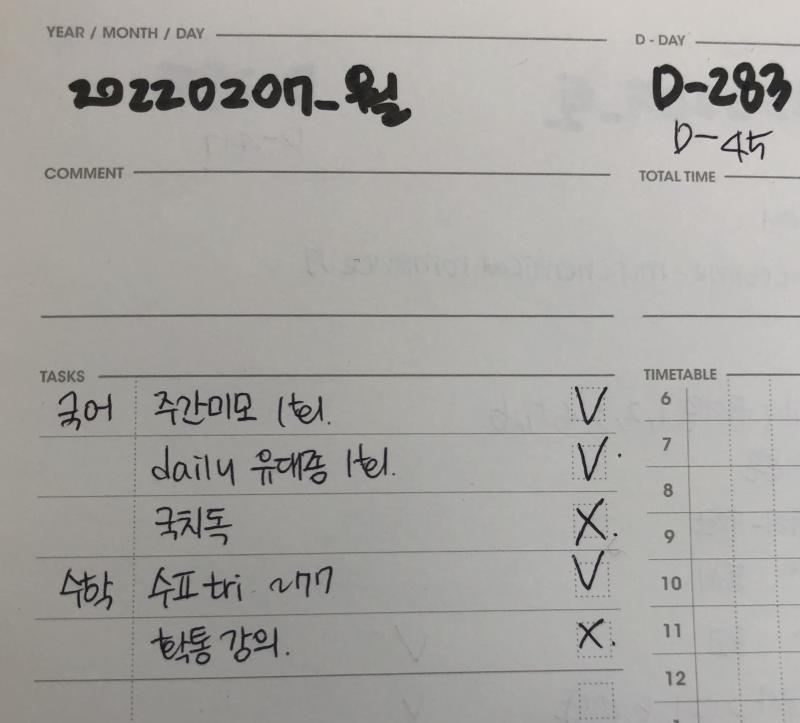 YEAR / MONTH / DAY
D - DAY
20220207_월
D-283
D-45
COMMENT
TOTAL TIME
TASKS
TIMETABLE
국어 주간미모 1tei. V
daily 유대종 1tei. V
국치독 X
수학 수표 tri ~77 V
학통 강의. X
6
7
8
9
10
11
12